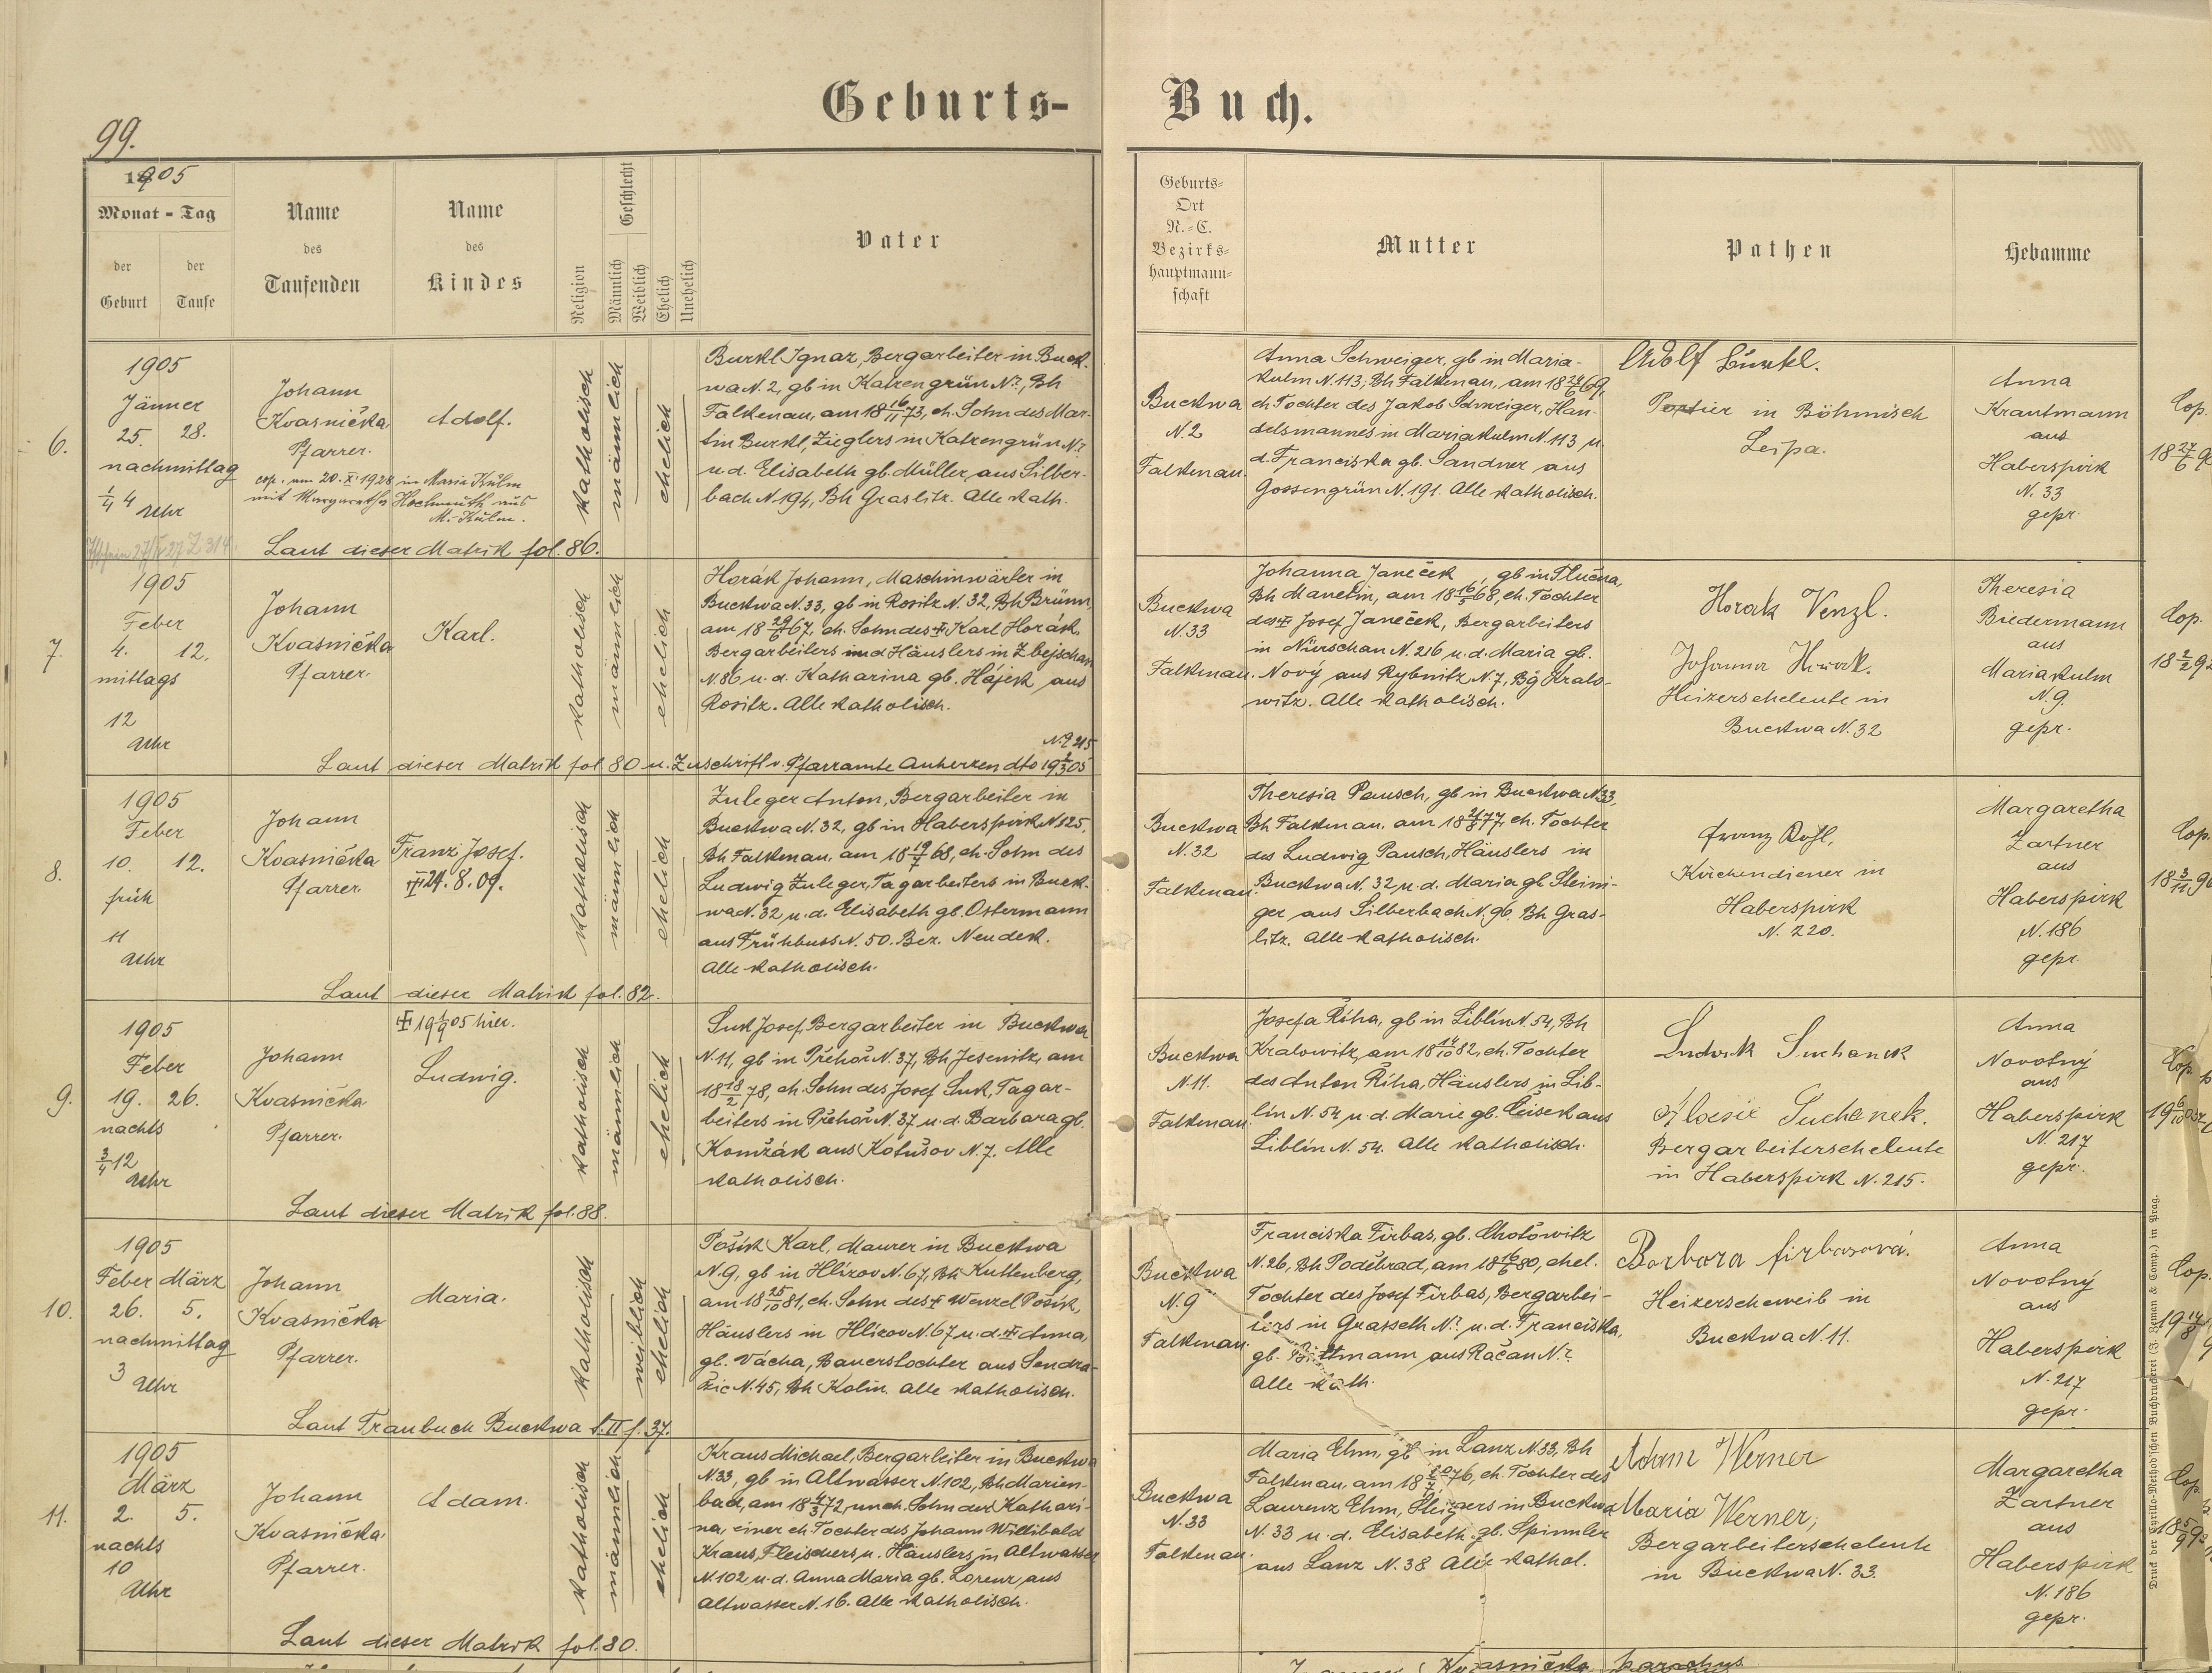 Geburts-
Buch.
99.
1905
Monat - Tag
der Geburt
der Taufe
Name
des
Taufenden
Name
des
Kindes
Religion
Geschlecht
Männlich
Weiblich
Ehelich
Unehelich
Vater
Geburts-
Ort
N.-C.
Bezirks-
hauptmann-
schaft
Mutter
Pathen
Hebamme
6.
1905
Jänner
25. 28.
nachmittag
1/4 4 Uhr
Johann
Kvasnička
Pfarrer.
cop. am 20. X. 1928 in Maria Kulm
mit Margaretha Hochmuth aus
M.-Kulm.
Adolf.
katholisch
männlich
ehelich
Burkl Ignaz, Bergarbeiter in Buck-
wa N. 2, gb in Katzengrün N?, Bh
Falkenau, am 18 16/11 73, eh. Sohn des Mar-
tin Burkl, Zieglers in Katzengrün N?
u. d. Elisabeth gb. Müller aus Silber-
bach N 194, Bh Graslitz. Alle kath.
Laut dieser Matrik fol. 86.
Buckwa
N. 2
Falkenau.
Anna Schweiger, gb in Maria-
kulm N. 113, Bh Falkenau, am
eh Tochter des Jakob Schweiger, Han-
delsmannes in Mariakulm N. 113 u.
d. Franciska gb. Sandner aus
Gossengrün N. 191. Alle katholisch.
Adolf Burkl.
Portier in Böhmisch
Leipa.
Anna
Krautmann
aus
Haberspirk
N. 33
gepr.
Cop.
7.
1905
Feber
4. 12.
mittags
12
Uhr
Johann
Kvasnička
Pfarrer.
Karl.
katholisch
männlich
ehelich
Horák Johann, Maschinwärter in
Buckwa N. 33, gb in Rositz N. 32, Bh Brünn,
am 18 29/6 67, eh. Sohn des † Karl Horák,
Bergarbeiters und Häuslers in Zbejschau
N 86 u. d. Katharina gb. Hájek aus
Rositz. Alle katholisch.
N. 215
Laut dieser Matrik fol 80 u. Zuschrift v. Pfarramte Auherzen dto 19 2/3 05
Buckwa
N. 33
Falkenau.
Johanna Janeček, gb in Plučna,
Bh Manetin, am 18 16/5 68, eh. Tochter
des † Josef Janeček, Bergarbeiters
in Nürschan N. 216 u. d. Maria gb.
Nový aus Rybnitz N. 7, Bg Kralo-
witz. Alle katholisch.
Horak Venzl.
Johanna Horak.
Heizerseheleute in
Buckwa N. 32
Theresia
Biedermann
aus
Mariakulm
N. 9.
gepr.
Cop.
8.
1905
Feber
10. 12.
früh
11
Uhr
Johann
Kvasnička
Pfarrer.
Franz Josef.
† 24. 8. 09.
katholisch
männlich
ehelich
Zuleger Anton, Bergarbeiter in
Buckwa N. 32, gb in Haberspirk N 125,
Bh Falkenau, am 18 19/7 68, eh. Sohn des
Ludwig Zuleger, Tagarbeiters in Buck-
wa N. 32 u. d. Elisabeth gb. Ostermann
aus Frühbuss N. 50. Bez. Neudek.
Alle katholisch.
Laut dieser Matrik fol. 82.
Buckwa
N. 32
Falkenau.
Theresia Pausch, gb in Buckwa N 33,
Bh Falkenau, am 18 21/8 77, eh. Tochter
des Ludwig Pausch, Häuslers in
Buckwa N. 32 u. d. Maria gb. Steini-
ger aus Silberbach N. 96. Bh Gras-
litz. Alle katholisch.
Franz
Kirchendiener in
Haberspirk
N. 220.
Margaretha
Zartner
aus
Haberspirk
N. 186
gepr.
Cop.
9.
1905
Feber
19. 26.
nachts
3/4 12
Uhr
Johann
Kvasnička
Pfarrer.
† 19 1/9 05 hier.
Ludwig.
katholisch
männlich
ehelich
Suk Josef, Bergarbeiter in Buckwa
N. 11, gb in Přehoř N. 37, Bh Jesenitz, am
18 18/2 78, eh. Sohn des Josef Suk, Tagar-
beiters in Přehoř N. 37 u. d. Barbara gb.
Komžák aus Kotušov N. 7. Alle
katholisch.
Laut dieser Matrik fol. 88.
Buckwa
N. 11.
Falkenau.
Josefa Říha, gb in Liblín N. 54, Bh
Kralowitz, am 18 14/10 82, eh. Tochter
des Anton Říha, Häuslers in Lib-
lín N. 54 u d. Marie gb. Čísek aus
Liblín N. 54. Alle katholisch.
Ludwik Suchanek
Aloisie Suchanek.
Bergarbeiterseheleute
in Haberspirk N. 215.
Anna
Novotný
aus
Haberspirk
N. 217
gepr.
Cop.
10.
1905
Feber März
26. 5.
nachmittag
3 Uhr
Johann
Kvasnička
Pfarrer.
Maria.
katholisch
weiblich
ehelich
Pošík Karl, Maurer in Buckwa
N. 9, gb in Hlízov N. 67, Bh Kuttenberg,
am 18 25/10 81, eh. Sohn des † Wenzel Pošík,
Häuslers in Hlízov N. 67 u. d. † Anna,
gb. Vácha, Bauerstochter aus Sendra-
žic N. 45, Bh Kolin. Alle katholisch.
Laut Traubuch Buckwa t. II f. 37.
Buckwa
N. 9
Falkenau.
Franciska Firbas, gb. Chotowitz
N. 26, Bh Poděbrad, am 18 16/6 80, ehel.
Tochter des Josef Firbas, Bergarbei-
ters in Grasseth N? u. d. Franciska,
gb. Bittmann aus Račan N?
Alle kath.
Barbora Firbasová.
Heizerseheweib in
Buckwa N. 11.
Anna
Novotný
aus
Haberspirk
N. 217
gepr.
Cop.
11.
1905
März
2. 5.
nachts
10
Uhr
Johann
Kvasnička
Pfarrer.
Adam.
katholisch
männlich
ehelich
Kraus Michael, Bergarbeiter in Buckwa
N 33, gb in Altwasser N. 102, Bh Marien-
bad, am 18 4/3 72, uneh. Sohn der Kathari-
na, einer eh. Tochter des Johann Willibald
Kraus, Fleischers u. Häuslers in Altwasser
N. 102 u. d. Anna Maria gb. Lorenz aus
Altwasser N. 16. Alle katholisch.
Laut dieser Matrik fol. 80.
Buckwa
N. 33
Falkenau.
Maria Ehm, gb in Lanz N 33, Bh
Falkenau, am 18 76, eh. Tochter des
Laurenz Ehm, Steigers in Buckwa
N. 33 u. d. Elisabeth gb. Spinnler
aus Lanz N. 38 Alle kathol.
Adam Werner
Maria Werner,
Bergarbeiterseheleute
in Buckwa N. 33.
Margaretha
Zartner
aus
Haberspirk
N. 186
gepr.
Cop.
Druck der Cyrillo-Method'schen Buchdruckerei (J. Zeman & Comp.) in Prag.
Kvasnička parochus